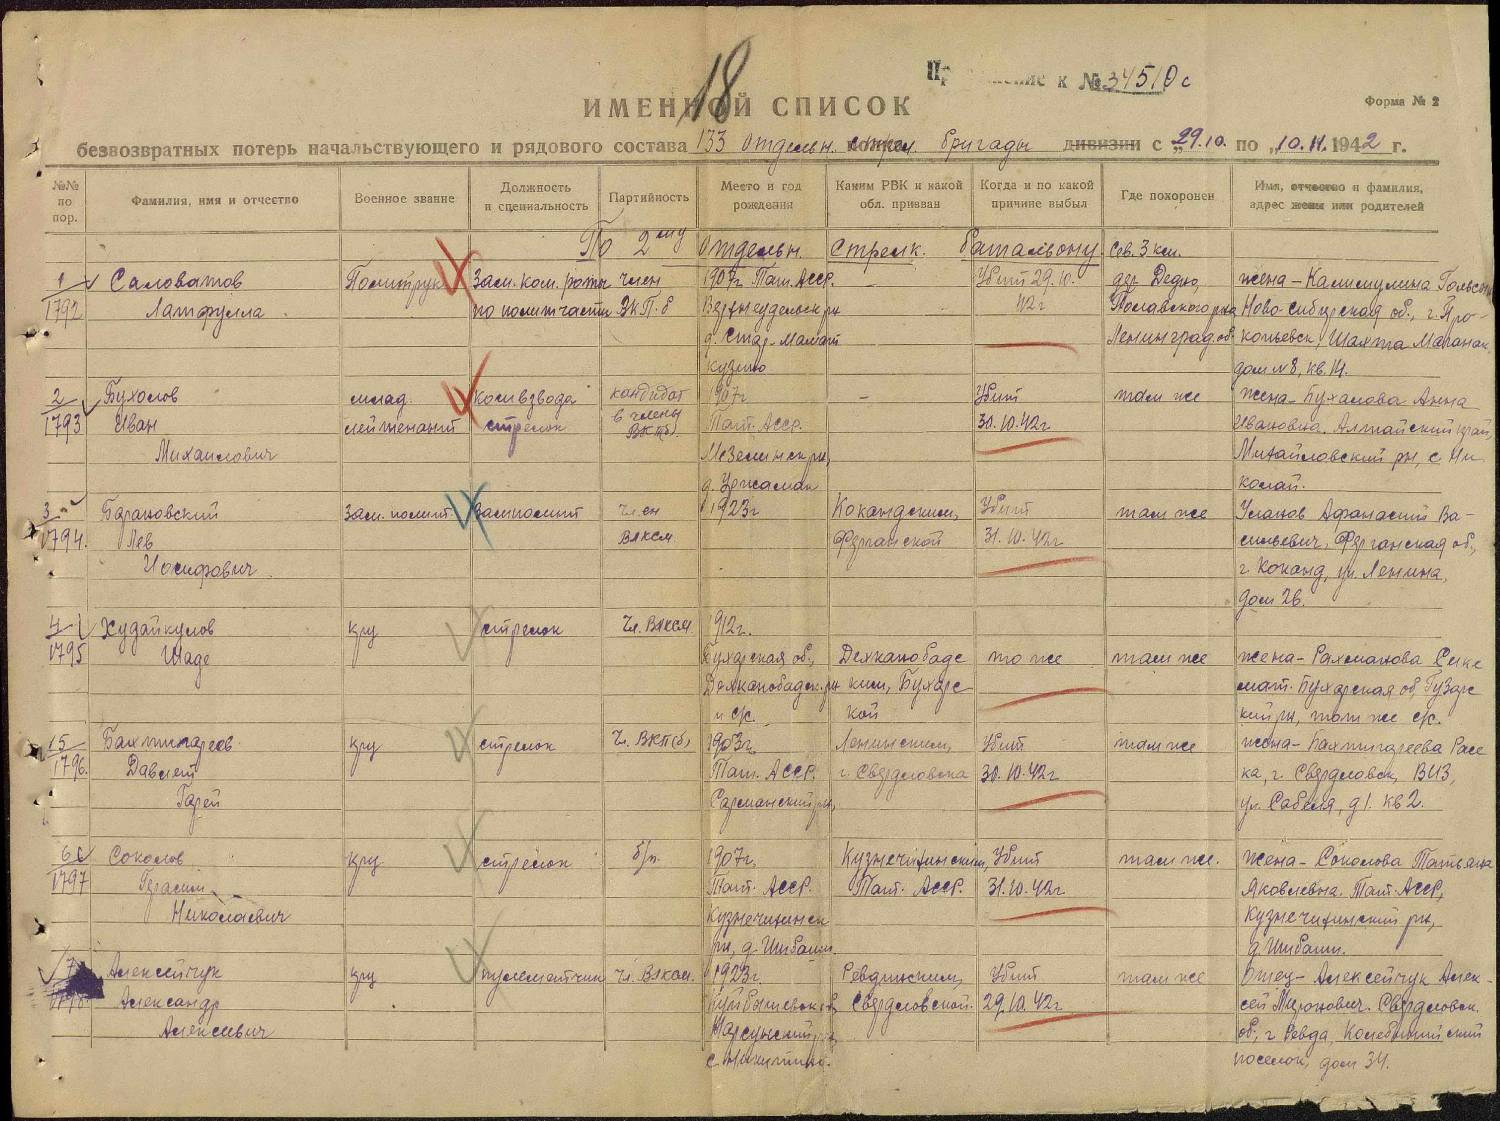 18
к № 34510 с
ИМЕННОЙ СПИСОК
Форма № 2
безвозвратных потерь начальствующего и рядового состава 133 отдельн. стрел. бригады дивизии с „29.10. по „10.11.1942 г.
№№ по пор.
Фамилия, имя и отчество
Военное звание
Должность и специальность
Партийность
Место и год рождения
Каким РВК и какой обл. призван
Когда и по какой причине выбыл
Где похоронен
Имя, отчество и фамилия, адрес жены или родителей
По 2му Отдельн. Стрелк. Батальону
1
1792
Саловатов
Латфулла
Политрук
Зам. ком. роты
по политчасти
член
ВКП.б
1907г. Тат. АССР.
д. Стар-Мамат
Убит 29.10.
42г
Сев. 3 км.
дер. Ледно,
Полавского рна
Ленинград. об.
жена – Калимулина
Ново-сибирская об., г. Про-
копьевск, Шахта
дом №8, кв. 14.
2
1793
Бухалов
Иван
Михаилович
млад.
лейтенант
ком взвода
стрелок
кандидат
в члены
ВКП(б)
1907г
Тат. АССР.
Мензелинск рн,
–
Убит
30.10.42г
там же
жена – Бухалова Анна
Ивановна. Алтайский край,
Михайловский рн, с Ни-
колай.
3
1794.
Барановский
Лев
Иосифович
Зам. полит.
Зам полит
Член
ВЛКСМ
1923г
Кокандским,
Ферганской
Убит
31.10.42г
там же
Уланов Афанасий Ва-
сильевич, Ферганская об.,
г. Коканд, ул. Ленина,
дом 26.
4
1795
Худайкулов
Шаде
кр-ц
стрелок
Чл. ВЛКСМ
1912г.
Бухарская об.,
Дехканобадск. рн
и с/с.
Дехканобадс
ким, Бухарс
кой
то же
там же
жена – Рахманова
Бухарская об Гузарс
кий рн, там же с/с.
5
1796.
Бахтигареев
Давлет
Гарей
кр-ц
стрелок
Чл. ВКП(б)
1903г.
Тат. АССР.
Сармановский рн,
Ленинским,
г. Свердловска
Убит
30.10.42г
там же
жена – Бахтигареева Расе
ка, г. Свердловск, ВИЗ,
ул. Сабеля, д1. кв 2.
6
1797
Соколов
Герасим
Николаевич
кр-ц
стрелок
б/п.
1907г.
Тат. АССР.
Кузнечихинск
рн, д. Шибаши.
Кузнечихинским,
Тат. АССР.
Убит
31.10.42г
там же.
жена – Соколова Татьяна
Яковлевна. Тат. АССР,
Кузнечихинский рн,
д. Шибаши.
7
Алексейчук
Александр
Алексеевич
кр-ц
пулеметчик
Чл. ВЛКСМ.
1923г
Куйбышевск об,
с. Никитино.
Ревдинским,
Свердловской.
Убит
29.10.42г
там же
Отец – Алексейчук Алек-
сей Миронович. Свердловск.
об., г Ревда,
поселок, дом 34.